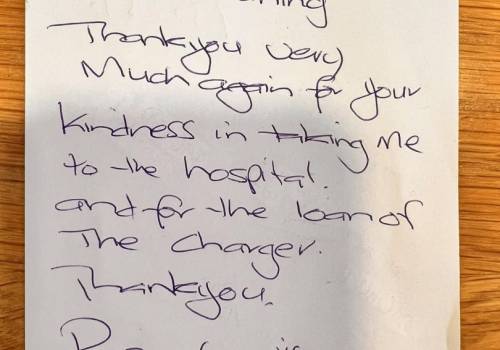 Thankyou very
Much again for your
kindness in taking Me
to the hospital.
and for the loan of
The Charger.
Thankyou.